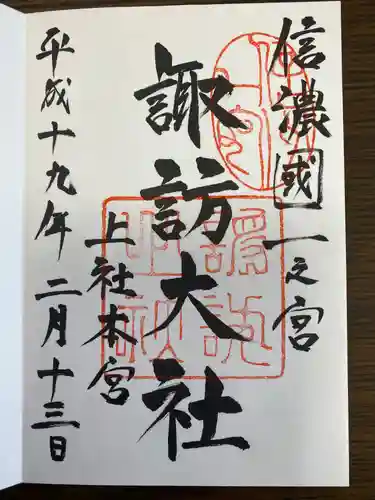 信濃國一之宮
諏訪大社
上社本宮
平成十九年二月十三日